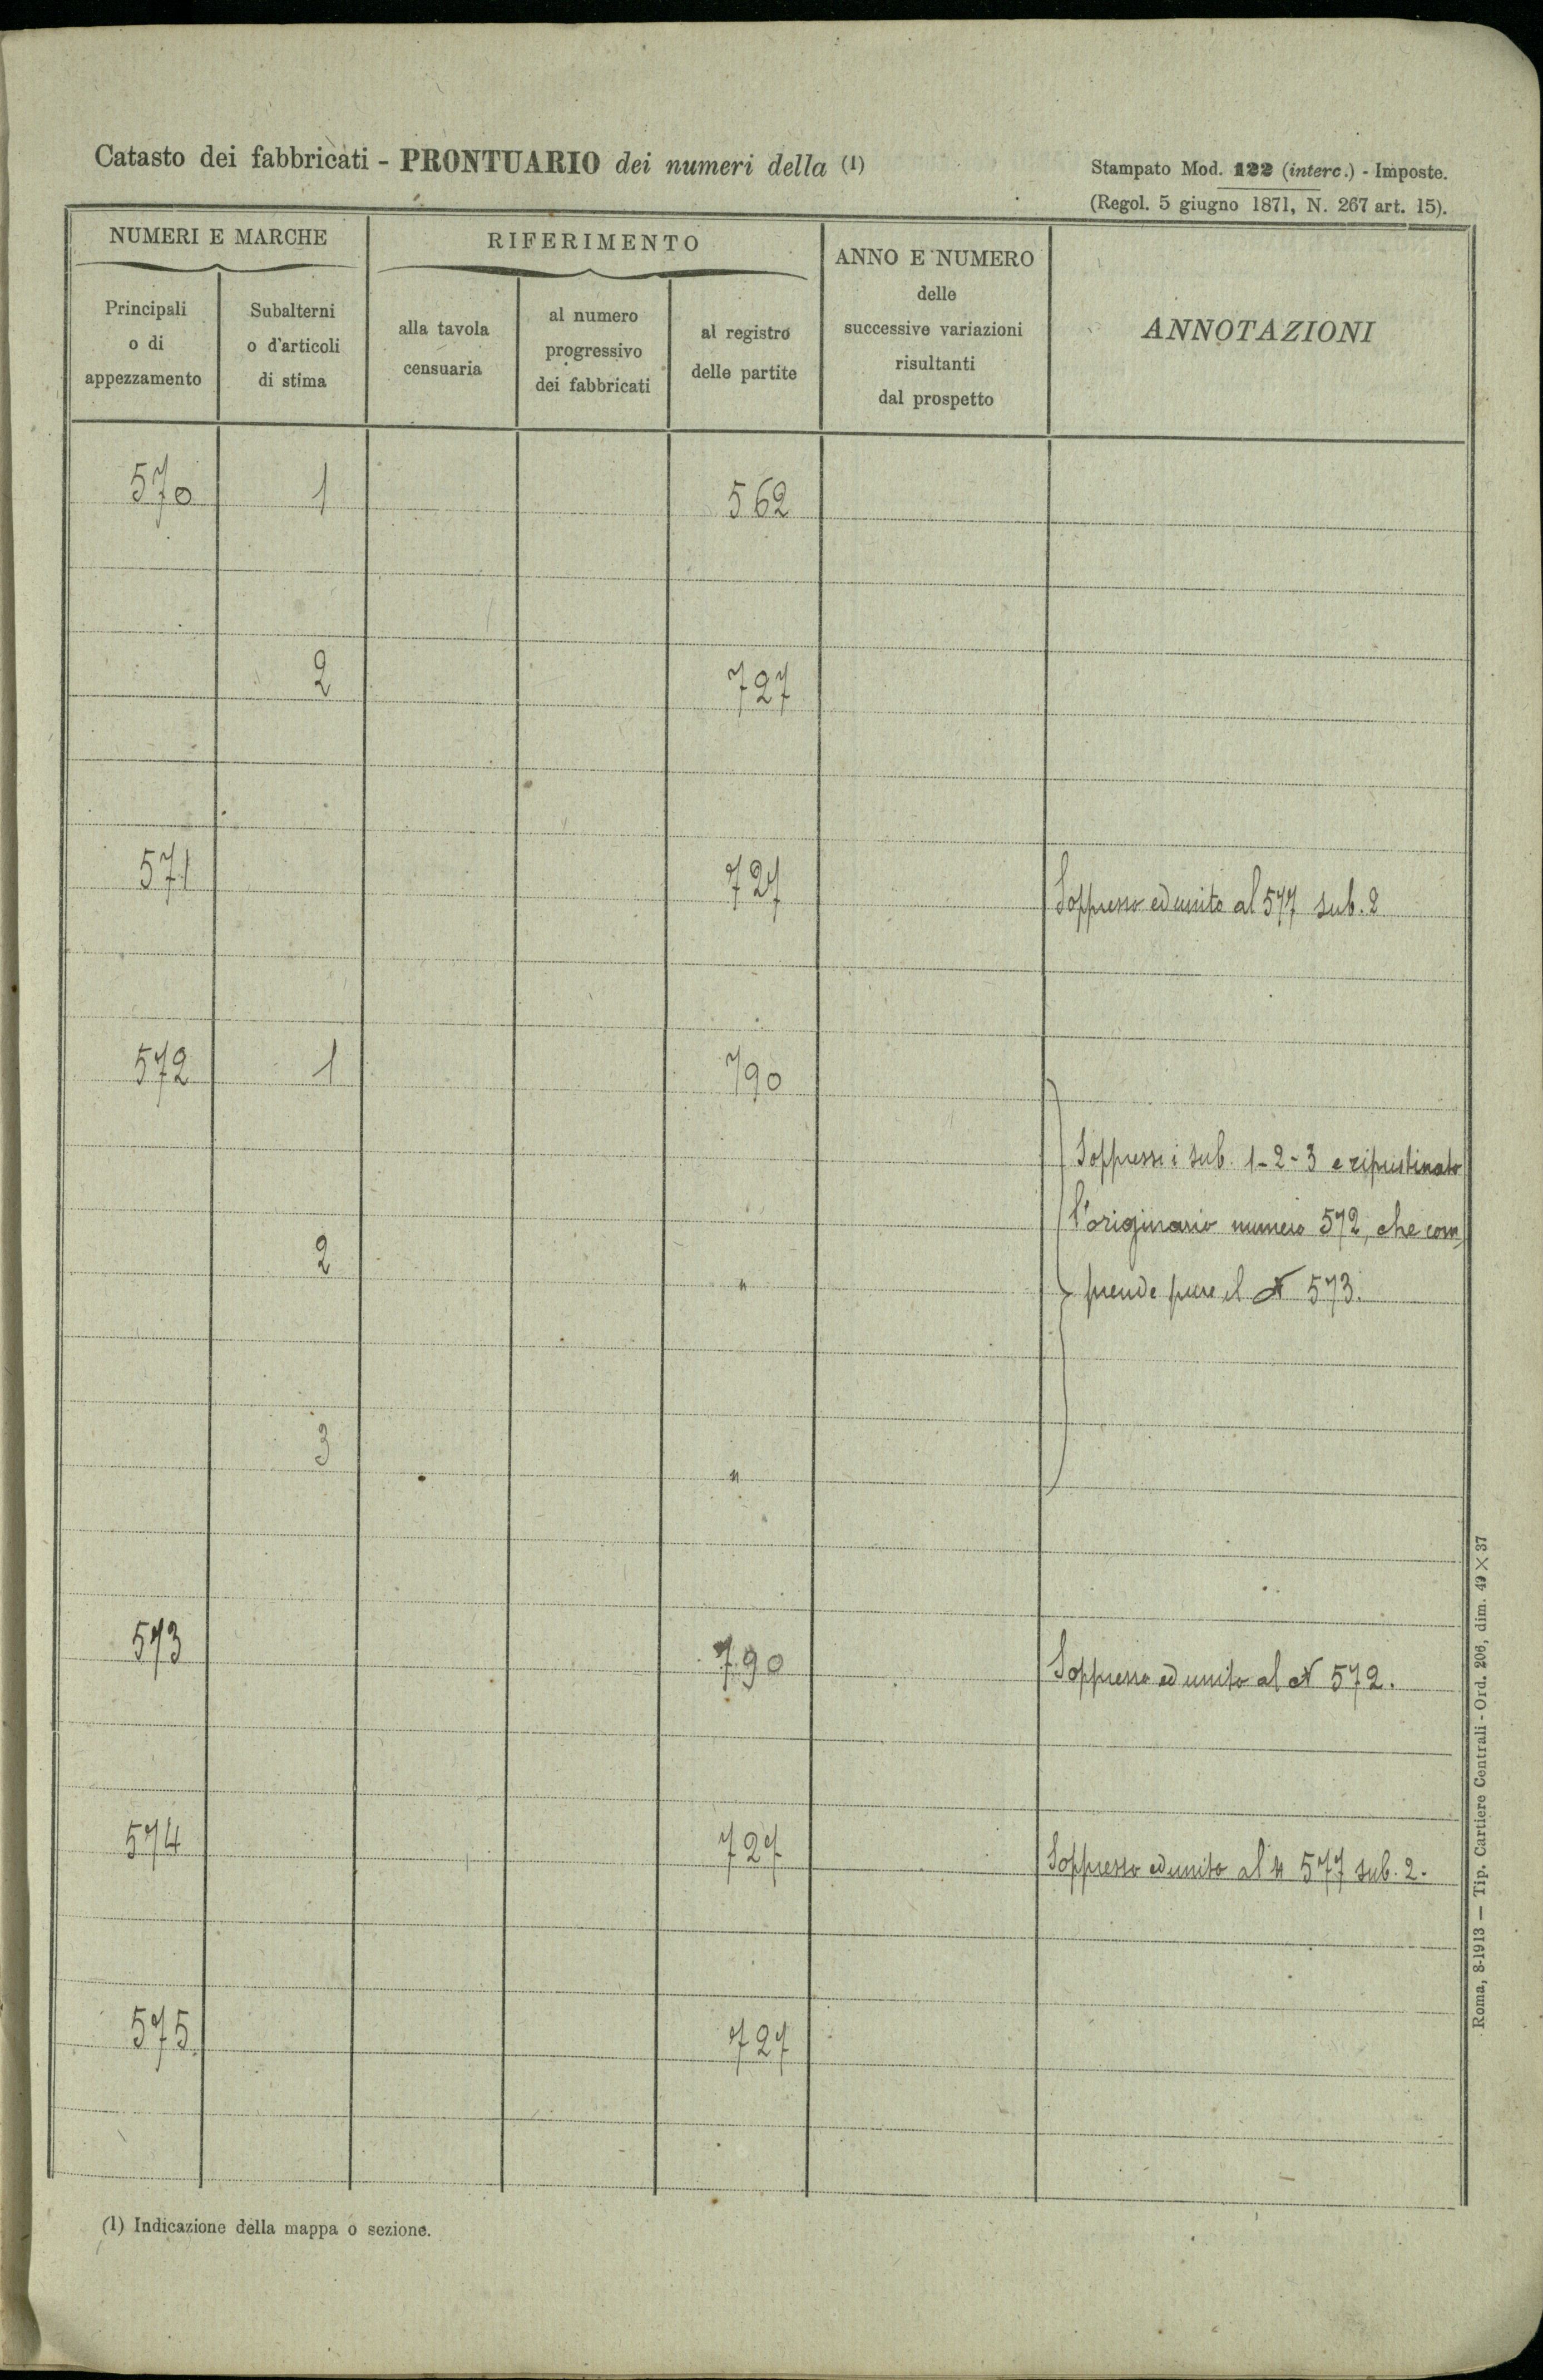 Catasto dei fabbricati - PRONTUARIO dei numeri della (1)
Stampato Mod. 122 (interc.) - Imposte.
(Regol. 5 giugno 1871, N. 267 art. 15).
NUMERI E MARCHE
RIFERIMENTO
ANNO E NUMERO
delle
successive variazioni
risultanti
dal prospetto
ANNOTAZIONI
Principali
o di
appezzamento
Subalterni
o d'articoli
di stima
alla tavola
censuaria
al numero
progressivo
dei fabbricati
al registro
delle partite
570 1 562
2 727
571 727 Soppresso ed unito al 577 sub. 2
572 1 790
Soppressi i sub. 1-2-3 e ripristinato
l'originario numero 572, che com
2 "
prende pure il N 573.
3 "
573 790 Soppresso ed unito al N 572.
574 727 Soppresso ed unito al N 577 sub. 2.
575 727
(1) Indicazione della mappa o sezione.
Roma, 8-1913 — Tip. Cartiere Centrali - Ord. 206, dim. 49 × 37